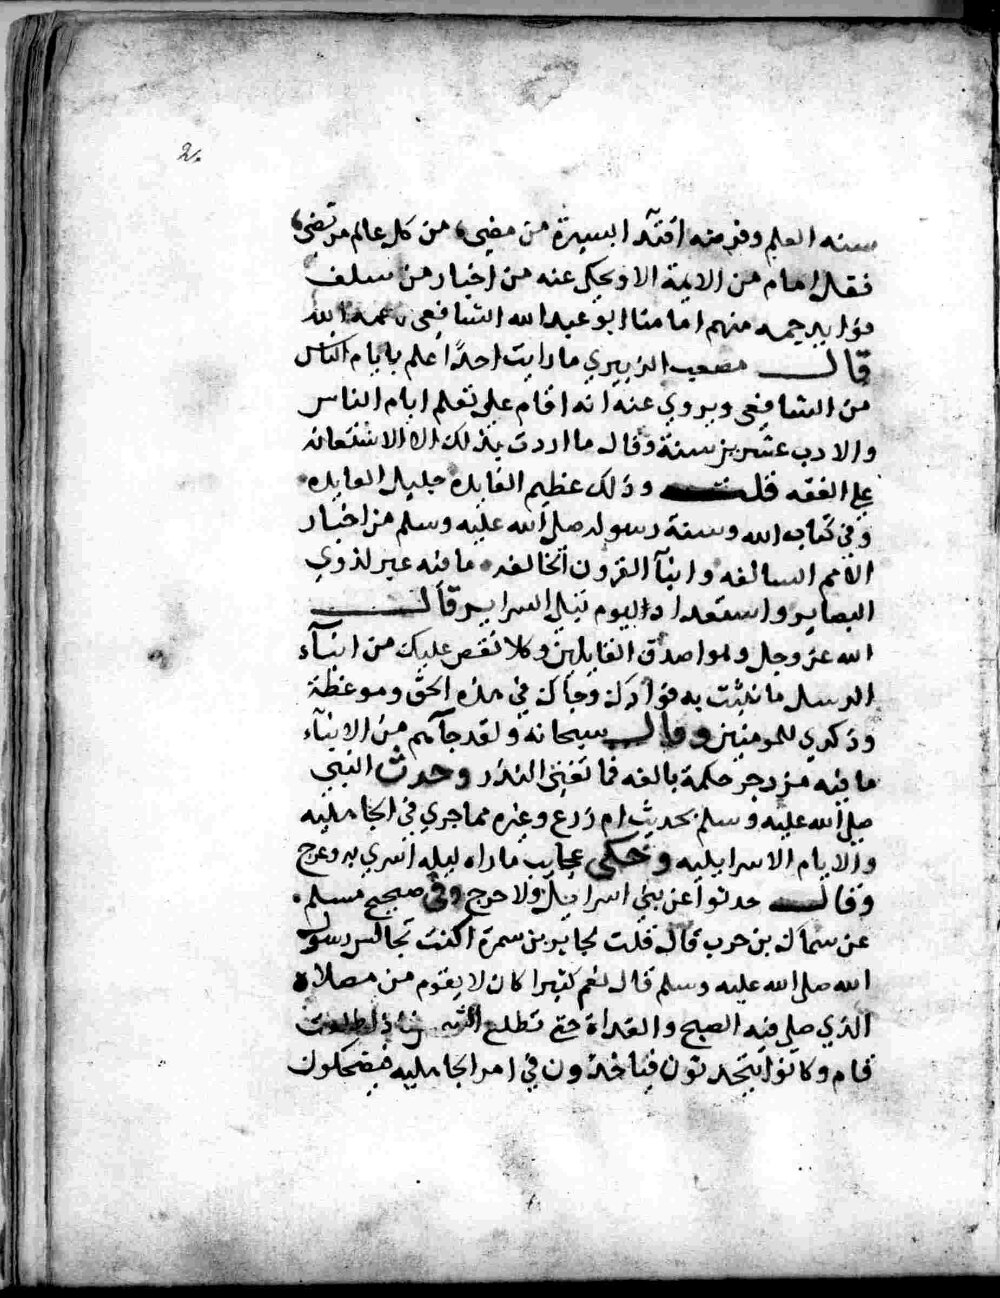 2.
سنه العلم وفر منه اقتدا بسيرة من مضى من كل عالم مرتضى
فقل امام من الايمة الا ويحكى عنه من اخبار من سلف
فوايد جمه منهم امامنا ابو عبد الله الشافعى رحمه الله
قال مصعب الزبيري ما رايت احدًا اعلم بايام الناس
من الشافعى ويروي عنه انه اقام على تعلم ايام الناس
والادب عشرين سنة وقال ما اردت بذلك الا الاستعانه
على الفقه قلت وذلك عظيم الفايده جليل العايده
وفى كتاب الله وسنة رسوله صلى الله عليه وسلم من اخبار
الامم السالفه وانبآ القرون الخالفه ما فيه عبر لذوي
البصاير واستعداد اليوم تبلى السراير قال
الله عز وجل وهو اصدق القايلين وكلا نقص عليك من انبآء
الرسل ما نثبت به فوادك وجاك في هذه الحق وموعظة
وذكري للمومنين وقال سبحانه ولقد جآهم من الانبآء
ما فيه مزدجر حكمة بالغه فما تغنى النذر وحدث النبي
صلى الله عليه وسلم بحديث ام زرع وغيره مما جري فى الجاهليه
والايام الاسرايليه وحكى عجايب ما راه ليله اسري به وعرج
وقال حدثوا عن بني اسرايل ولا حرج وفى صحيح مسلم
عن سماك بن حرب قال قلت لجابر بن سمرة اكنت تجالس رسول
الله صلى الله عليه وسلم قال نعم كثيرا كان لا يقوم من مصلاه
الذي صلى فيه الصبح والغداة حتى تطلع الشمس فاذا طلعت
قام وكانوا يتحدثون فياخذون في امر الجاهليه فيضحكون